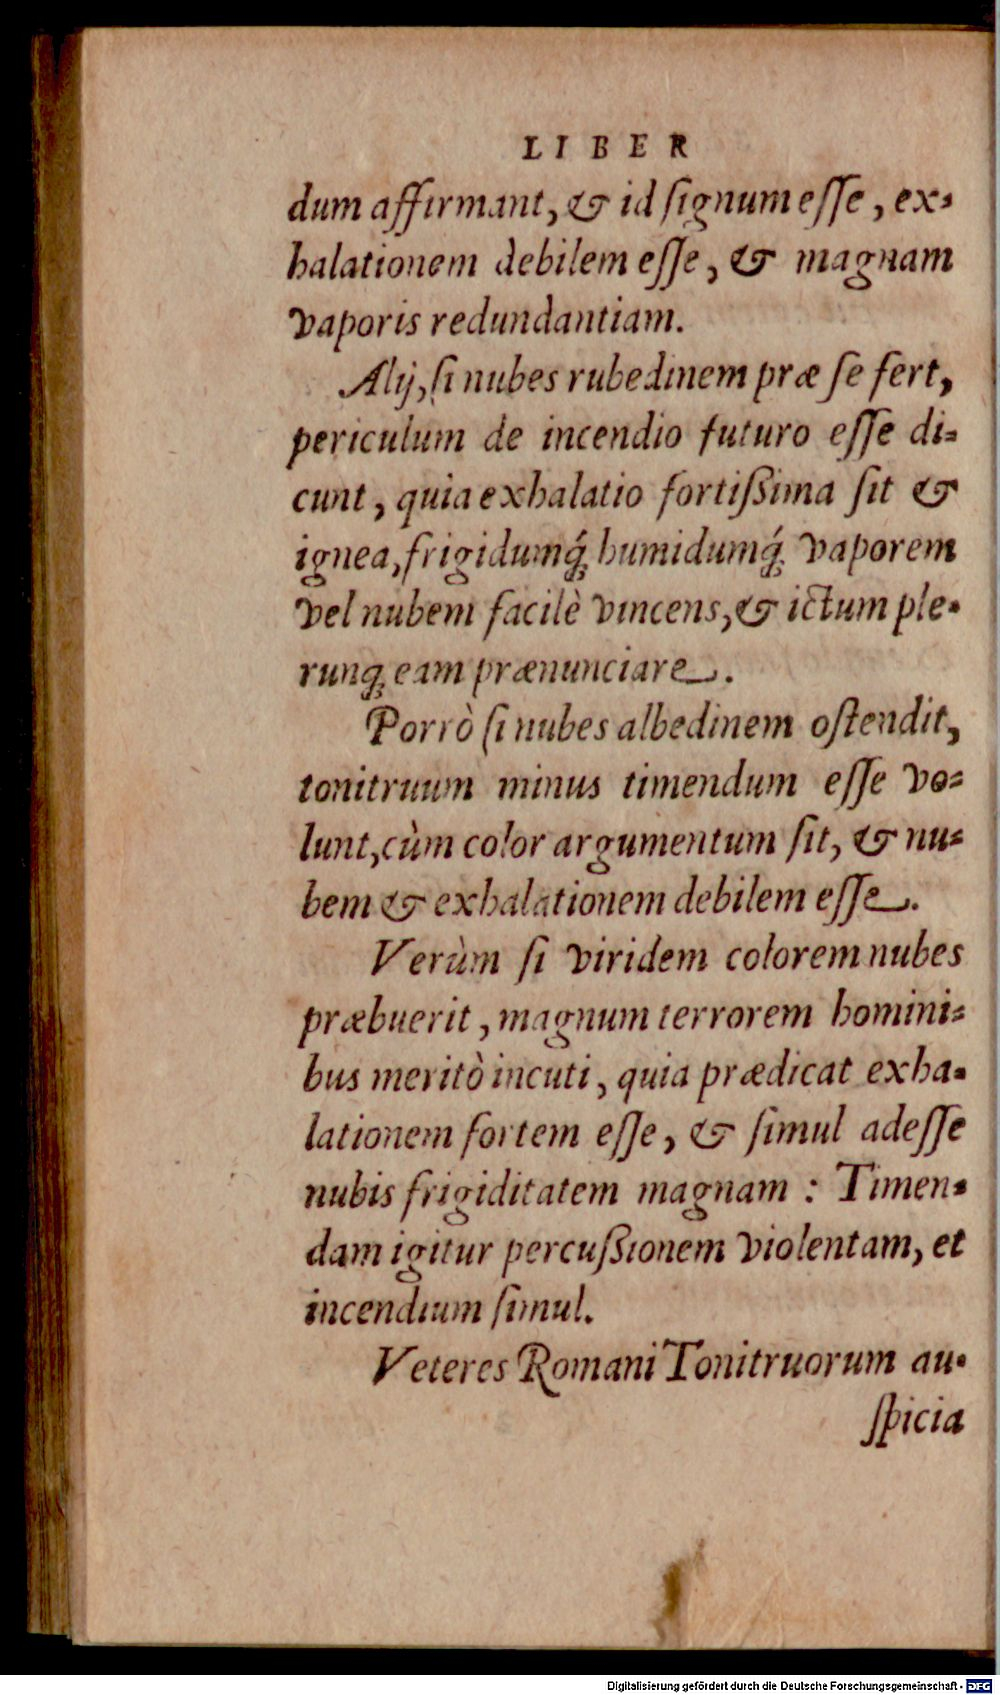 LIBER
dum affirmant, & id ſignum eſſe, ex-
halationem debilem eſſe, & magnam
vaporis redundantiam.
Alij, ſi nubes rubedinem præ ſe fert,
periculum de incendio futuro eſſe di-
cunt, quia exhalatio fortißima ſit &
ignea, frigidumq́; humidumq́; vaporem
vel nubem facilè vincens, & ictum ple-
runq; eam prænunciare.
Porrò ſi nubes albedinem oſtendit,
tonitruum minus timendum eſſe vo-
lunt, cùm color argumentum ſit, & nu-
bem & exhalationem debilem eſſe.
Verùm ſi viridem colorem nubes
præbuerit, magnum terrorem homini-
bus meritò incuti, quia prædicat exha-
lationem fortem eſſe, & ſimul adeſſe
nubis frigiditatem magnam : Timen-
dam igitur percußionem violentam, et
incendium ſimul.
Veteres Romani Tonitruorum au-
ſpicia
Digitalisierung gefördert durch die Deutsche Forschungsgemeinschaft - DFG